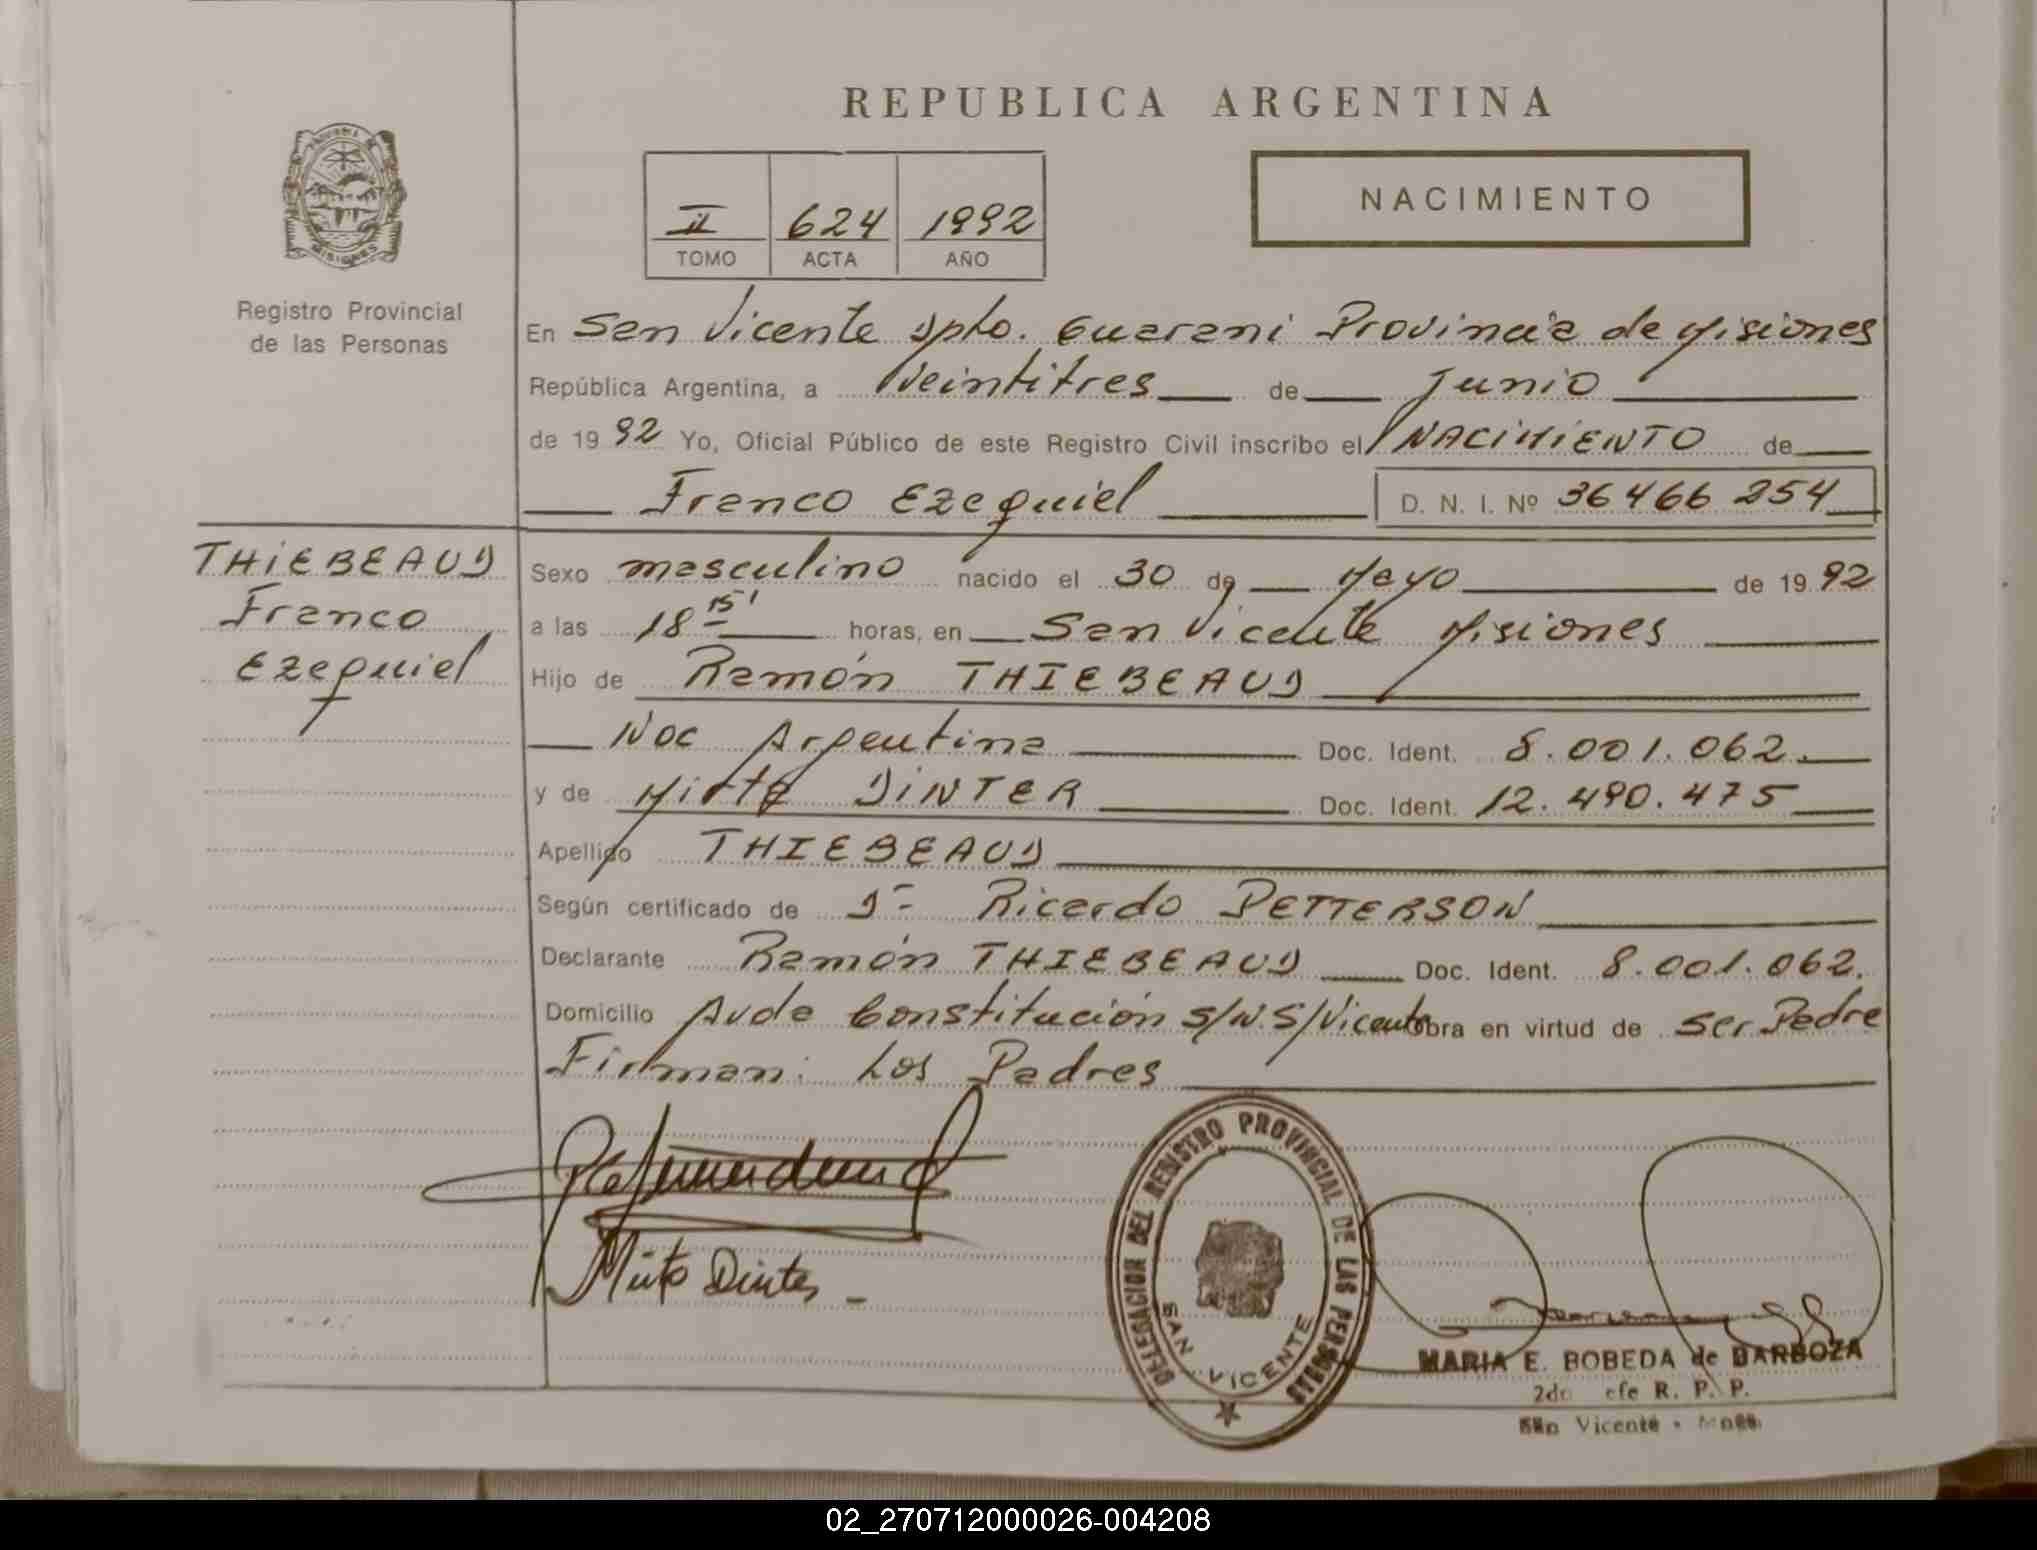 REPUBLICA ARGENTINA
NACIMIENTO
II 624 1992
TOMO ACTA AÑO
MISIONES
Registro Provincial
de las Personas
En San Vicente Dpto. Guarani Provincia de Misiones
República Argentina, a Veintitres de Junio
de 1992 Yo, Oficial Público de este Registro Civil inscribo el NACIMIENTO de
Franco Ezequiel D. N. I. Nº 36466 254
THIEBEAUD
Franco
Ezequiel
Sexo masculino nacido el 30 de Mayo de 1992
a las 18 15' horas, en San Vicente Misiones
Hijo de Ramón THIEBEAUD
Nac Argentina Doc. Ident. 8.001.062.
y de Mirta DINTER Doc. Ident. 12.490.475
Apellido THIEBEAUD
Según certificado de Dr Ricardo PETTERSON
Declarante Ramón THIEBEAUD Doc. Ident. 8.001.062.
Domicilio Avda Constitución S/N. S/Vicente obra en virtud de ser Padre
Firman: Los Padres
Mirta Dinter
DELEGACION DEL REGISTRO PROVINCIAL DE LAS PERSONAS
SAN VICENTE
MARIA E. BOBEDA de BARBOZA
2do efe R. P. P.
San Vicente - Mnes.
02_270712000026-004208